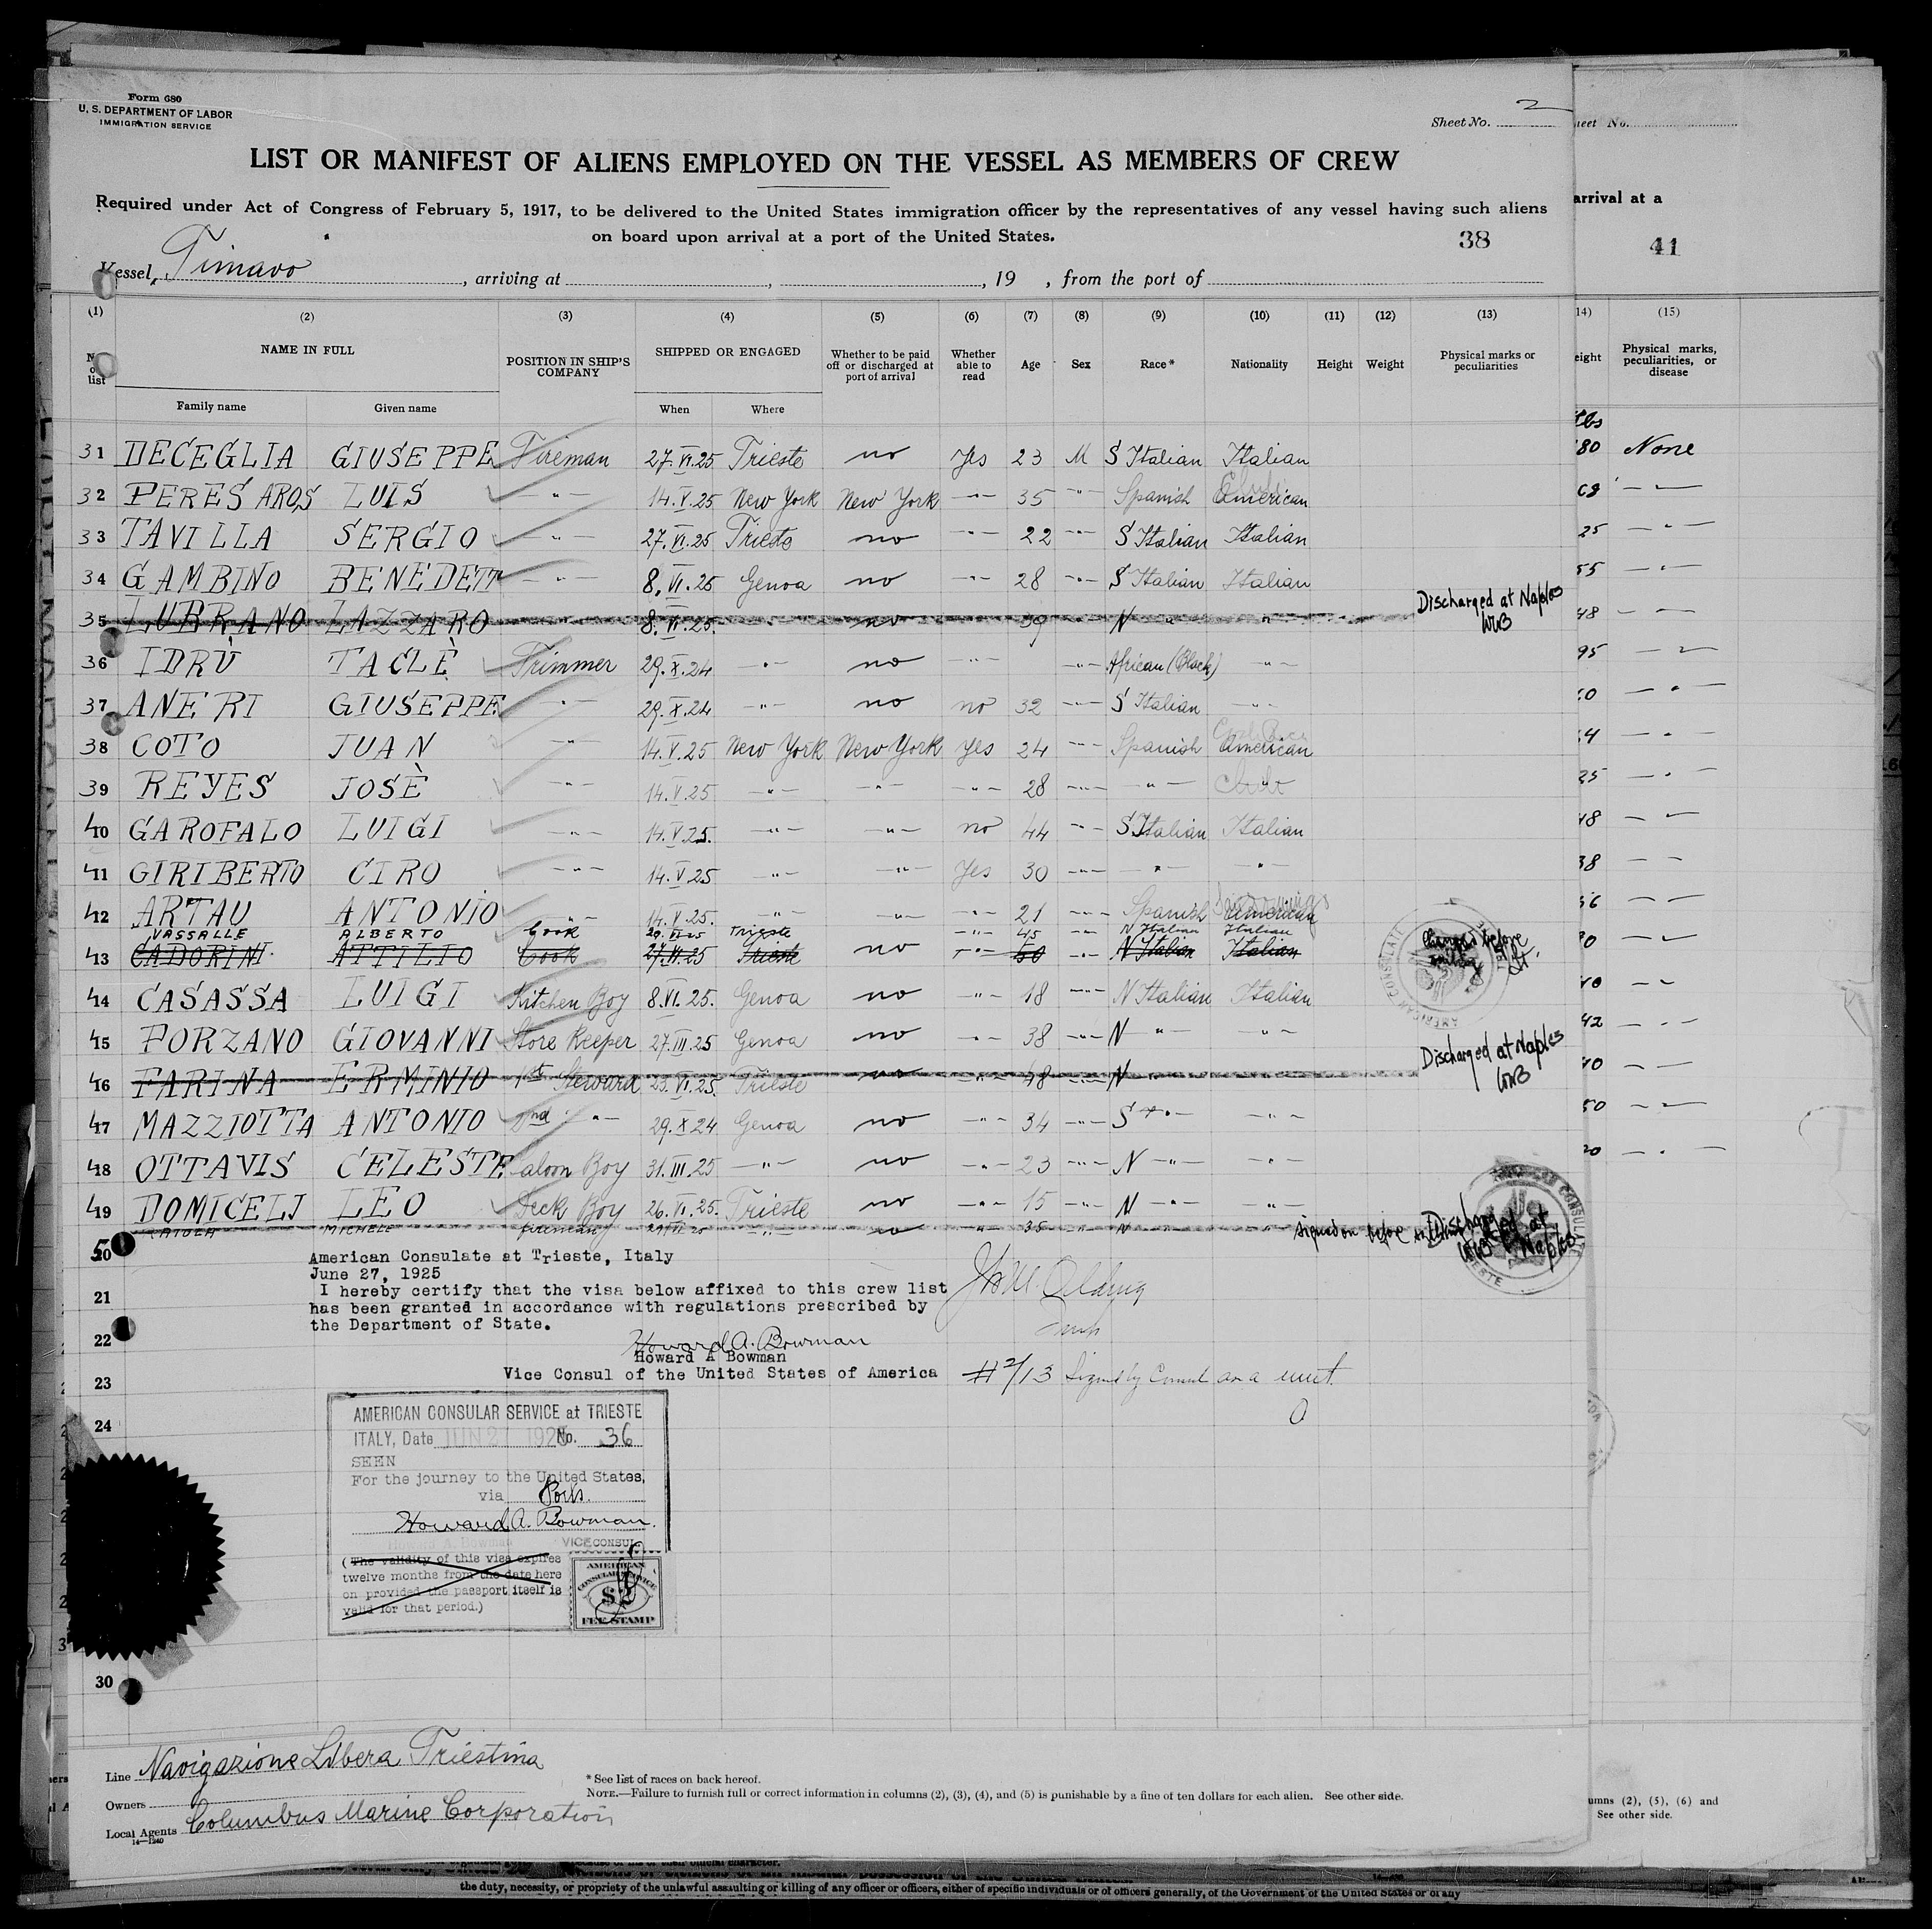 Form 680
U. S. DEPARTMENT OF LABOR
IMMIGRATION SERVICE
Sheet No. 2
LIST OR MANIFEST OF ALIENS EMPLOYED ON THE VESSEL AS MEMBERS OF CREW
Required under Act of Congress of February 5, 1917, to be delivered to the United States immigration officer by the representatives of any vessel having such aliens
on board upon arrival at a port of the United States.
38
Vessel, Timavo, arriving at , , 19 , from the port of
(1) (2) (3) (4) (5) (6) (7) (8) (9) (10) (11) (12) (13)
NAME IN FULL POSITION IN SHIP'S COMPANY SHIPPED OR ENGAGED Whether to be paid off or discharged at port of arrival Whether able to read Age Sex Race* Nationality Height Weight Physical marks or peculiarities
list Family name Given name When Where
31 DECEGLIA GIUSEPPE Fireman 27.VI.25 Trieste no yes 23 M S Italian Italian
32 PERES AROS LUIS -"- 14.V.25 New York New York -"- 35 -"- Spanish American
33 TAVILLA SERGIO -"- 27.VI.25 Trieste no -"- 22 -"- S Italian Italian
34 GAMBINO BENEDETT -"- 8.VI.25 Genoa no -"- 28 -"- S Italian Italian
35 LUBRANO LAZZARO 8.VI.25. -"- no -"- 39 -"- N -"- -"- Discharged at Naples
WB
36 IDRÙ TACLÈ Trimmer 29.X.24 -"- no -"- -"- African (Black) -"-
37 ANERI GIUSEPPE -"- 29.X.24 -"- no no 32 -"- S Italian -"-
38 COTO JUAN -"- 14.V.25 New York New York yes 24 -"- Spanish American
39 REYES JOSÈ -"- 14.V.25 -"- -"- -"- 28 -"- -"-
40 GAROFALO LUIGI -"- 14.V.25. -"- -"- no 44 -"- S Italian Italian
41 GIRIBERTO CIRO -"- 14.V.25 -"- -"- yes 30 -"- -"- -"-
42 ARTAU ANTONIO -"- 14.V.25. -"- -"- -"- 21 -"- Spanish American
VASSALLE ALBERTO Cook 29.VI.25 Trieste -"- 45 -"- N Italian Italian
43 CADORINI ATTILIO Cook 27.VI.25 Trieste no -"- 50 -"- N Italian Italian Changed before
44 CASASSA LUIGI Kitchen Boy 8.VI.25. Genoa no -"- 18 -"- N Italian Italian
45 PORZANO GIOVANNI Store Keeper 27.III.25 Genoa no -"- 38 -"- N -"- -"-
46 FARINA ERMINIO 1st Steward 23.VI.25. Trieste no -"- 48 -"- N Discharged at Naples
WB
47 MAZZIOTTA ANTONIO 2nd -"- 29.X.24 Genoa no -"- 34 -"- S -"- -"-
48 OTTAVIS CELESTE Saloon Boy 31.III.25 -"- no -"- 23 -"- N -"- -"-
49 DOMICELJ LEO Deck Boy 26.VI.25. Trieste no -"- 15 -"- N -"- -"-
50 MICHELE fireman -"- no -"- 35 -"- N -"- Discharged at Naples
American Consulate at Trieste, Italy
June 27, 1925
I hereby certify that the visa below affixed to this crew list
has been granted in accordance with regulations prescribed by
the Department of State.
21
22
23
24
Howard A. Bowman
Howard A Bowman
Vice Consul of the United States of America
#2/13 Signed by Consul as a unit.
AMERICAN CONSULAR SERVICE at TRIESTE
ITALY, Date JUN 27 1925 No. 36
SEEN
For the journey to the United States,
via Ports.
Howard A. Bowman.
Howard A. Bowman VICE CONSUL
(The validity of this visa expires
twelve months from the date here
on provided the passport itself is
valid for that period.)
AMERICAN
CONSULAR SERVICE
$2
FEE STAMP
30
Line Navigazione Libera Triestina
Owners
Local Agents Columbus Marine Corporation
14—1240
* See list of races on back hereof.
NOTE.—Failure to furnish full or correct information in columns (2), (3), (4), and (5) is punishable by a fine of ten dollars for each alien. See other side.
No.
arrival at a
41
(15)
Physical marks, peculiarities, or disease
80 None
umns (2), (5), (6) and
See other side.
the duty, necessity, or propriety of the unlawful assaulting or killing of any officer or officers, either of specific individuals or of officers generally, of the Government of the United States or of any